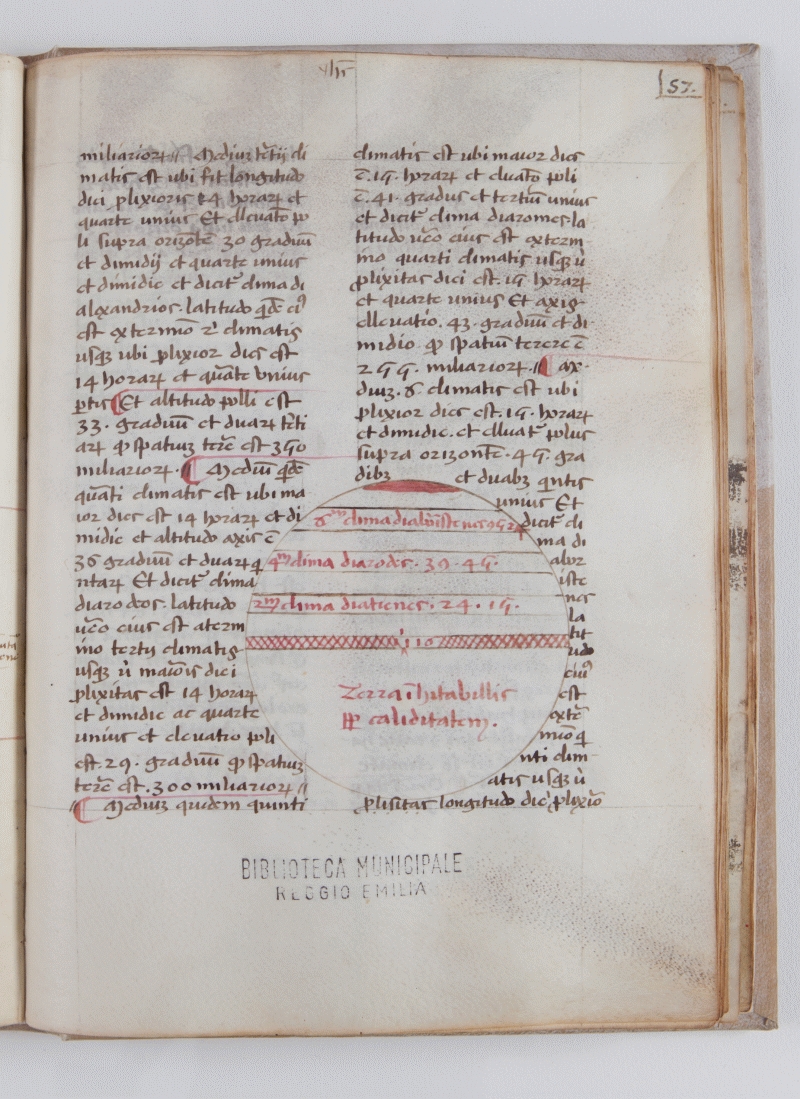 57.
miliarioꝝ // Mediuz tertij cli
matis est ubi fit longitudo
diei plixioris 14 horaꝝ et
quarte unius Et elleuatō po
li supra orizōtē 30 graduū
et dimidij et quarte unius
et dimidie et dicit clima di
alexandrios. latitudo
est ex termīo climatis
usqꝫ ubi plixior dies est
14 horaꝝ et quāte unius
ptis Et altitudo polli est
33. graduū et duaꝝ tēti
aꝝ spatiuz est 350
miliarioꝝ. Mediū
quāti climatis est ubi ma
ior dies est 14 horaꝝ et di
midie et altitudo axis ē
36 graduū et duaꝝ
Et dicit clima
diarodos. latitudo
uēo eius est aterm
īno tertij climatis
usqꝫ ù maioris diei
plixitas est 14 horaꝝ
et dimidie ac quarte
unius et eleuatio poli
est. 29. graduū spatiuz
est. 300 miliarioꝝ //
Mediuz quidem quinti
climatis est ubi maior dies
ē. 15. horaꝝ et eleuatō poli
ē. 41. gradus et tertiū unius
et dicit clima diaromes. la
titudo uēo eius est exterm
ino quarti climatis usqꝫ ù
plixitas diei est. 15 horaꝝ
et quarte unius Et axis
elleuatio. 43. graduū et di
midio spatiū terere ē
255. miliarioꝝ. // ax
diuz. 6 climatis est ubi
plixior dies est. 15. horaꝝ
et dimidie. et elluat polus
supra orizontē. 45. gra
dibꝫ et duabꝫ qintis
unius Et
dicit cli
ma di
abor
iste
nes
la
tit
udo
eius
est
extē
mio
nti clim
atis usqꝫ ù
plisitas longitudo diei plixio
clima
4m clima diarodos. 39. 45.
2m clima diatienes. 24. 15.
110
Terra īhitabillis
caliditatem.
BIBLIOTECA MUNICIPALE
REGGIO EMILIA